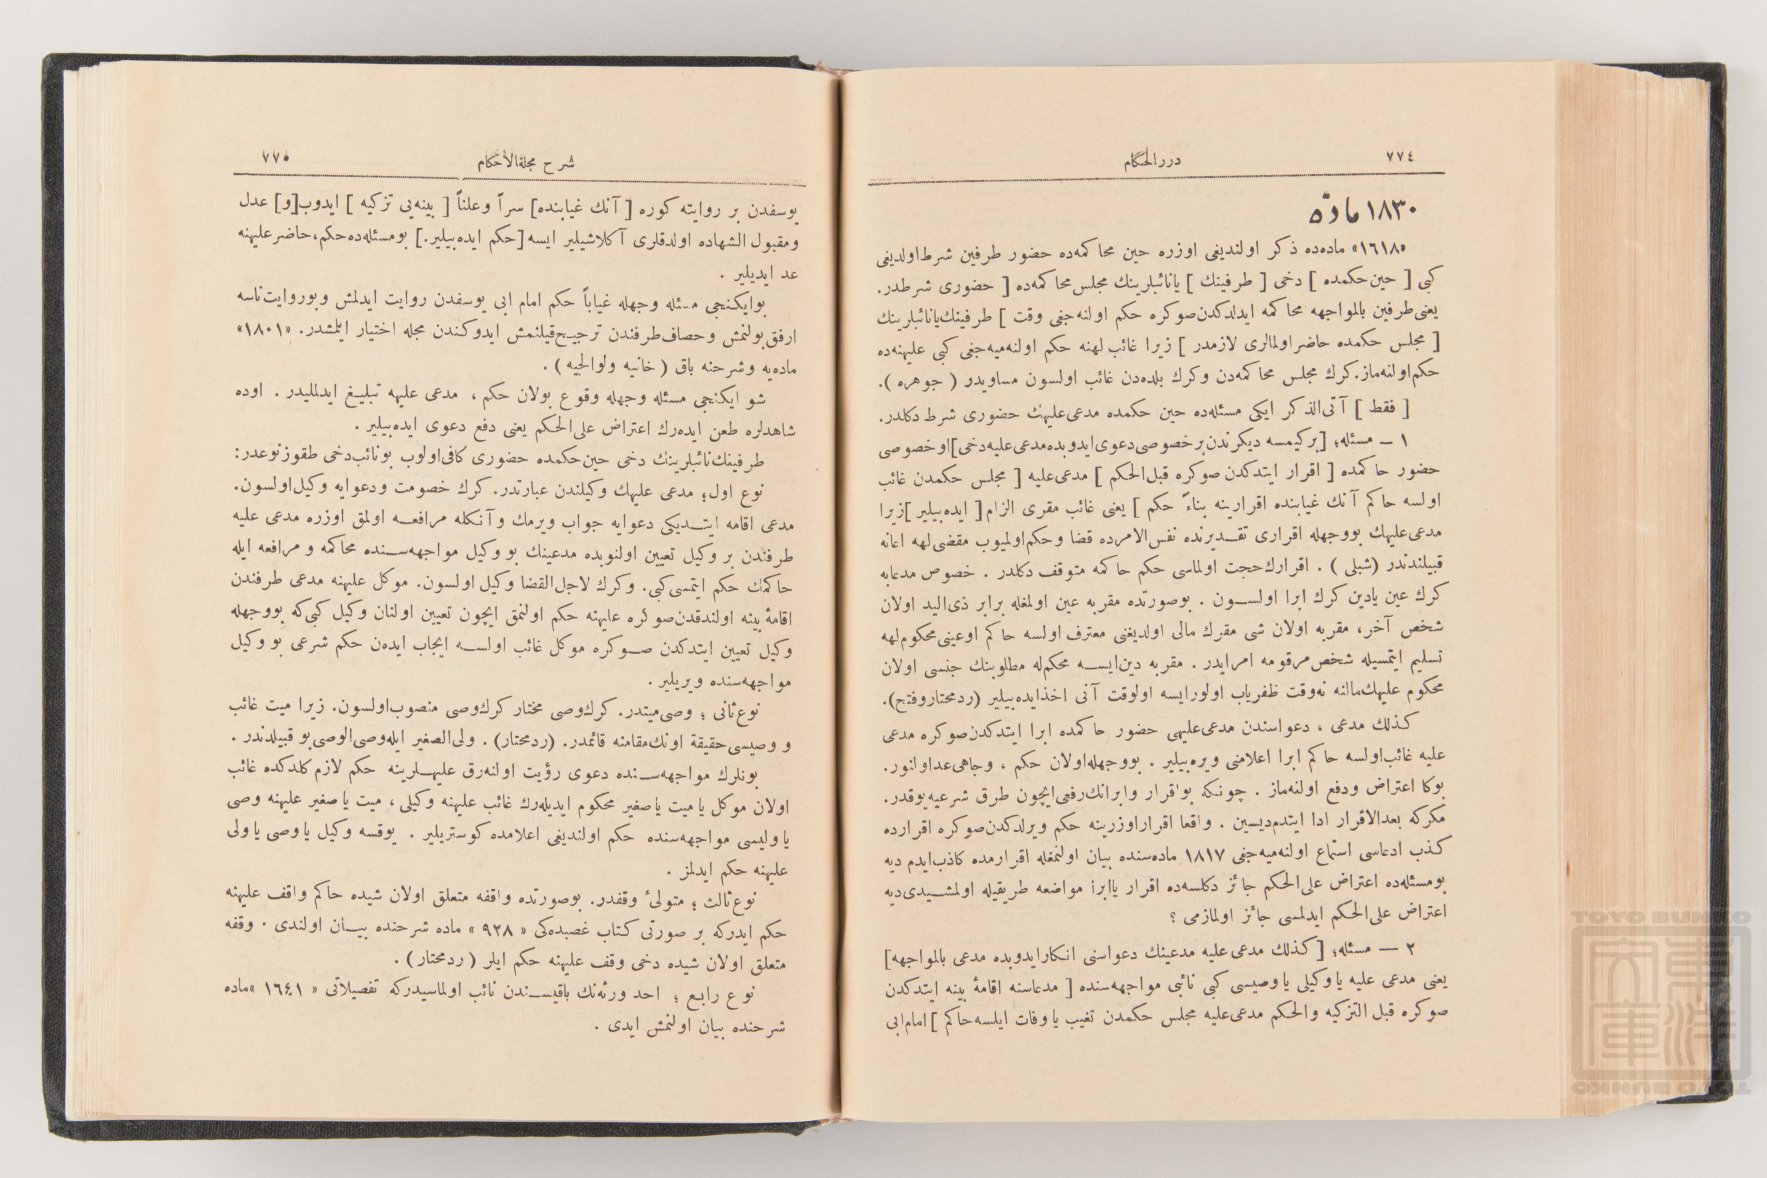 ٧٧٤
دررالحكام
١٨٣٠ مادّه
«١٦١٨» ماده‌ده ذكر اولنديغى اوزره حين محاكمه‌ده حضور طرفين شرط اولديغى
كبى [ حين حكمده ] دخى [ طرفينك ] يا نائبلرينك مجلس محاكمه‌ده [ حضورى شرطدر.
يعنى طرفين بالمواجهه محاكمه ايدلدكدن‌صوكره حكم اولنه‌جغى وقت ] طرفينك‌يانائبلرينك
[ مجلس حكمده حاضر اولمالرى لازمدر ] زيرا غائب لهنه حكم اولنه‌ميه‌جغى كبى عليهنه‌ده
حكم‌اولنه‌ماز.كرك مجلس محاكمه‌دن وكرك بلده‌دن غائب اولسون مساويدر ( جوهره ).
[ فقط ] آتى‌الذكر ايكى مسئله‌ده حين حكمده مدعى‌عليهك حضورى شرط دكلدر.
١ ـ مسئله؛ [بركيمسه ديكرندن‌برخصوصى‌دعوى‌ايدوبده‌مدعى‌عليه‌دخى]اوخصوصى
حضور حاكمده [ اقرار ايتدكدن صوكره قبل‌الحكم ] مدعى‌عليه [ مجلس حكمدن غائب
اولسه حاكم آنك غيابنده اقرارينه بناءً حكم ] يعنى غائب مقرى الزام [ ايده‌بيلير ]زيرا
مدعى‌عليهك بووجهله اقرارى تقـديرنده نفس‌الامرده قضا وحكم‌اولميوب مقضى‌لهه اعانه
قبيلندندر (شبلى ) . اقرارك‌حجت اولماسى حكم حاكمه متوقف دكلدر . خصوص مدعابه
كرك عين يادين كرك ابرا اولســون . بوصورتده مقربه عين اولمغله برابر ذى‌اليد اولان
شخص آخر، مقربه اولان شى مقرك مالى اولديغنى معترف اولسه حاكم اوعينى‌محكوم‌لهه
تسليم ايتمسيله شخص‌مرقومه امرايدر . مقربه دين‌ايســه محكم‌له مطلوبنك جنسى اولان
محكوم عليهك‌مالنه نه‌وقت ظفرياب اولورايسه اولوقت آنى اخذايده‌بيلير (ردمحتاروفتح).
كذلك مدعى ، دعواسندن مدعى‌عليهى حضور حاكمده ابرا ايتدكدن‌صوكره مدعى
عليه غائب‌اولسه حاكم ابرا اعلامنى ويره‌بيلير . بووجهله‌اولان حكم ، وجاهى‌عداولنور.
بوكا اعتراض ودفع اولنه‌ماز . چونكه بواقرار وابرانك‌رفعى‌ايچون طرق شرعيه‌يوقدر.
مكركه بعدالاقرار ادا ايتدم‌ديسين . واقعا اقراراوزرينه حكم ويرلدكدن‌صوكره اقرارده
كذب ادعاسى استماع اولنه‌ميه‌جغى ١٨١٧ ماده‌سنده بيان اولنمغله اقرارمده كاذب‌ايدم ديه
بومسئله‌ده اعتراض على‌الحكم جائز دكلسه‌ده اقرار ياابرا مواضعه طريقيله اولمشـيدى‌ديه
اعتراض على‌الحكم ايدلمسى جائز اولمازمى ؟
٢ ـ مسئله؛ [كذلك مدعى عليه مدعينك دعواسنى انكارايدوبده مدعى بالمواجهه]
يعنى مدعى عليه ياوكيلى ياوصيسى كبى نائبى مواجهه‌سنده [ مدعاسنه اقامهٔ بينه ايتدكدن
صوكره قبل التزكيه والحكم مدعى‌عليه مجلس حكمدن تغيب ياوفات ايلسه‌حاكم ] امام‌ابى
شرح مجلةالأحكام
٧٧٥
يوسفدن بر روايته كوره [ آنك غيابنده] سراً وعلناً [ بينه‌يى تزكيه ] ايدوب[و] عدل
ومقبول الشهاده اولدقلرى آكلاشيلير ايسه [حكم ايده‌بيلير.] بومسئله‌ده‌حكم، حاضرعليهنه
عد ايديلير .
بوايكنجى مسئله وجهله غياباً حكم امام ابى يوسفدن روايت ايدلمش وبوروايت‌ناسه
ارفق‌بولنمش وحصاف‌طرفندن ترجيح‌قيلنمش ايدوكندن مجله اختيار ايلمشدر. «١٨٠١»
ماده‌يه وشرحنه باق ( خانيه ولوالجيه ) .
شو ايكنجى مسئله وجهله وقوع بولان حكم ، مدعى عليهه تبليغ ايدلمليدر . اوده
شاهدلره طعن ايده‌رك اعتراض على‌الحكم يعنى دفع دعوى ايده‌بيلير .
طرفينك‌نائبلرينك دخى حين‌حكمده حضورى كافى‌اولوب بونائب‌دخى طقوزنوعدر:
نوع اول؛ مدعى عليهك وكيلندن عبارتدر. كرك خصومت ودعوايه وكيل‌اولسون.
مدعى اقامه ايتـديكى دعوايه جواب ويرمك وآنكله مرافعــه اولمق اوزره مدعى عليه
طرفندن بر وكيل تعيين اولنوبده مدعينك بو وكيل مواجهه‌ســنده محاكمه و مرافعه ايله
حاكمك حكم ايتمسى‌كبى. وكرك لاجل‌القضا وكيل اولسون. موكل عليهنه مدعى طرفندن
اقامهٔ بينه اولندقدن‌صوكره عليهنه حكم اولنمق ايچون تعيين اولنان وكيل كبى‌كه بووجهله
وكيل تعيين ايتدكدن صــوكره موكل غائب اولســه ايجاب ايدن حكم شرعى بو وكيل
مواجهه‌سنده ويريلير .
نوع‌ثانى ؛ وصى‌ميتدر. كرك‌وصى مختار كرك‌وصى منصوب‌اولسون. زيرا ميت غائب
و وصيسى‌حقيقة اونك‌مقامنه قائمدر. (ردمحتار) . ولى‌الصغير ايله‌وصى‌الوصى‌بو قبيلدندر .
بونلرك مواجهه‌ســنده دعوى رؤيت اولنه‌رق عليهــلرينه حكم لازم كلدكده غائب
اولان موكل يا ميت ياصغير محكوم ايديله‌رك غائب عليهنه وكيلى ، ميت ياصغير عليهنه وصى
ياوليسى مواجهه‌سنده حكم اولنديغى اعلامده كوستريلير . يوقسه وكيل ياوصى ياولى
عليهنه حكم ايدلمز .
نوع‌ثالث ؛ متولىٔ وقفدر. بوصورتده واقفه متعلق اولان شيده حاكم واقف عليهنه
حكم ايدركه بر صورتى كتاب غصبده‌كى « ٩٢٨ » ماده شرحنده بيــان اولندى . وقفه
متعلق اولان شيده دخى وقف عليهنه حكم ايلر ( ردمحتار ) .
نوع رابع ؛ احد ورثه‌نك باقيســندن نائب اولماسيدركه تفصيلاتى « ١٦٤١ »ماده
شرحنده بيان اولنمش ايدى .
TOYO BUNKO
東洋文庫
TOYO BUNKO